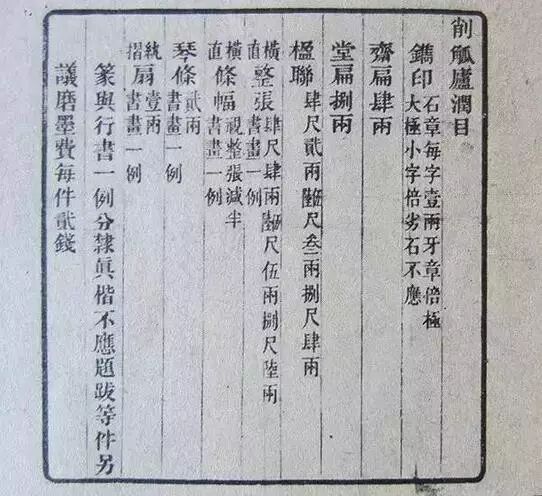 削觚廬潤目
鐫印石章每字壹兩牙章倍極
大極小字倍劣石不應
齋扁肆兩
堂扁捌兩
楹聯肆尺貳兩陸尺叁兩捌尺肆兩
橫直整張肆尺肆兩陸尺伍兩捌尺陸兩
書畫一例
橫直條幅視整張減半
書畫一例
琴條貳兩
書畫一例
紈摺扇壹兩
書畫一例
篆與行書一例分隸眞楷不應題跋等件另
議磨墨費每件貳錢